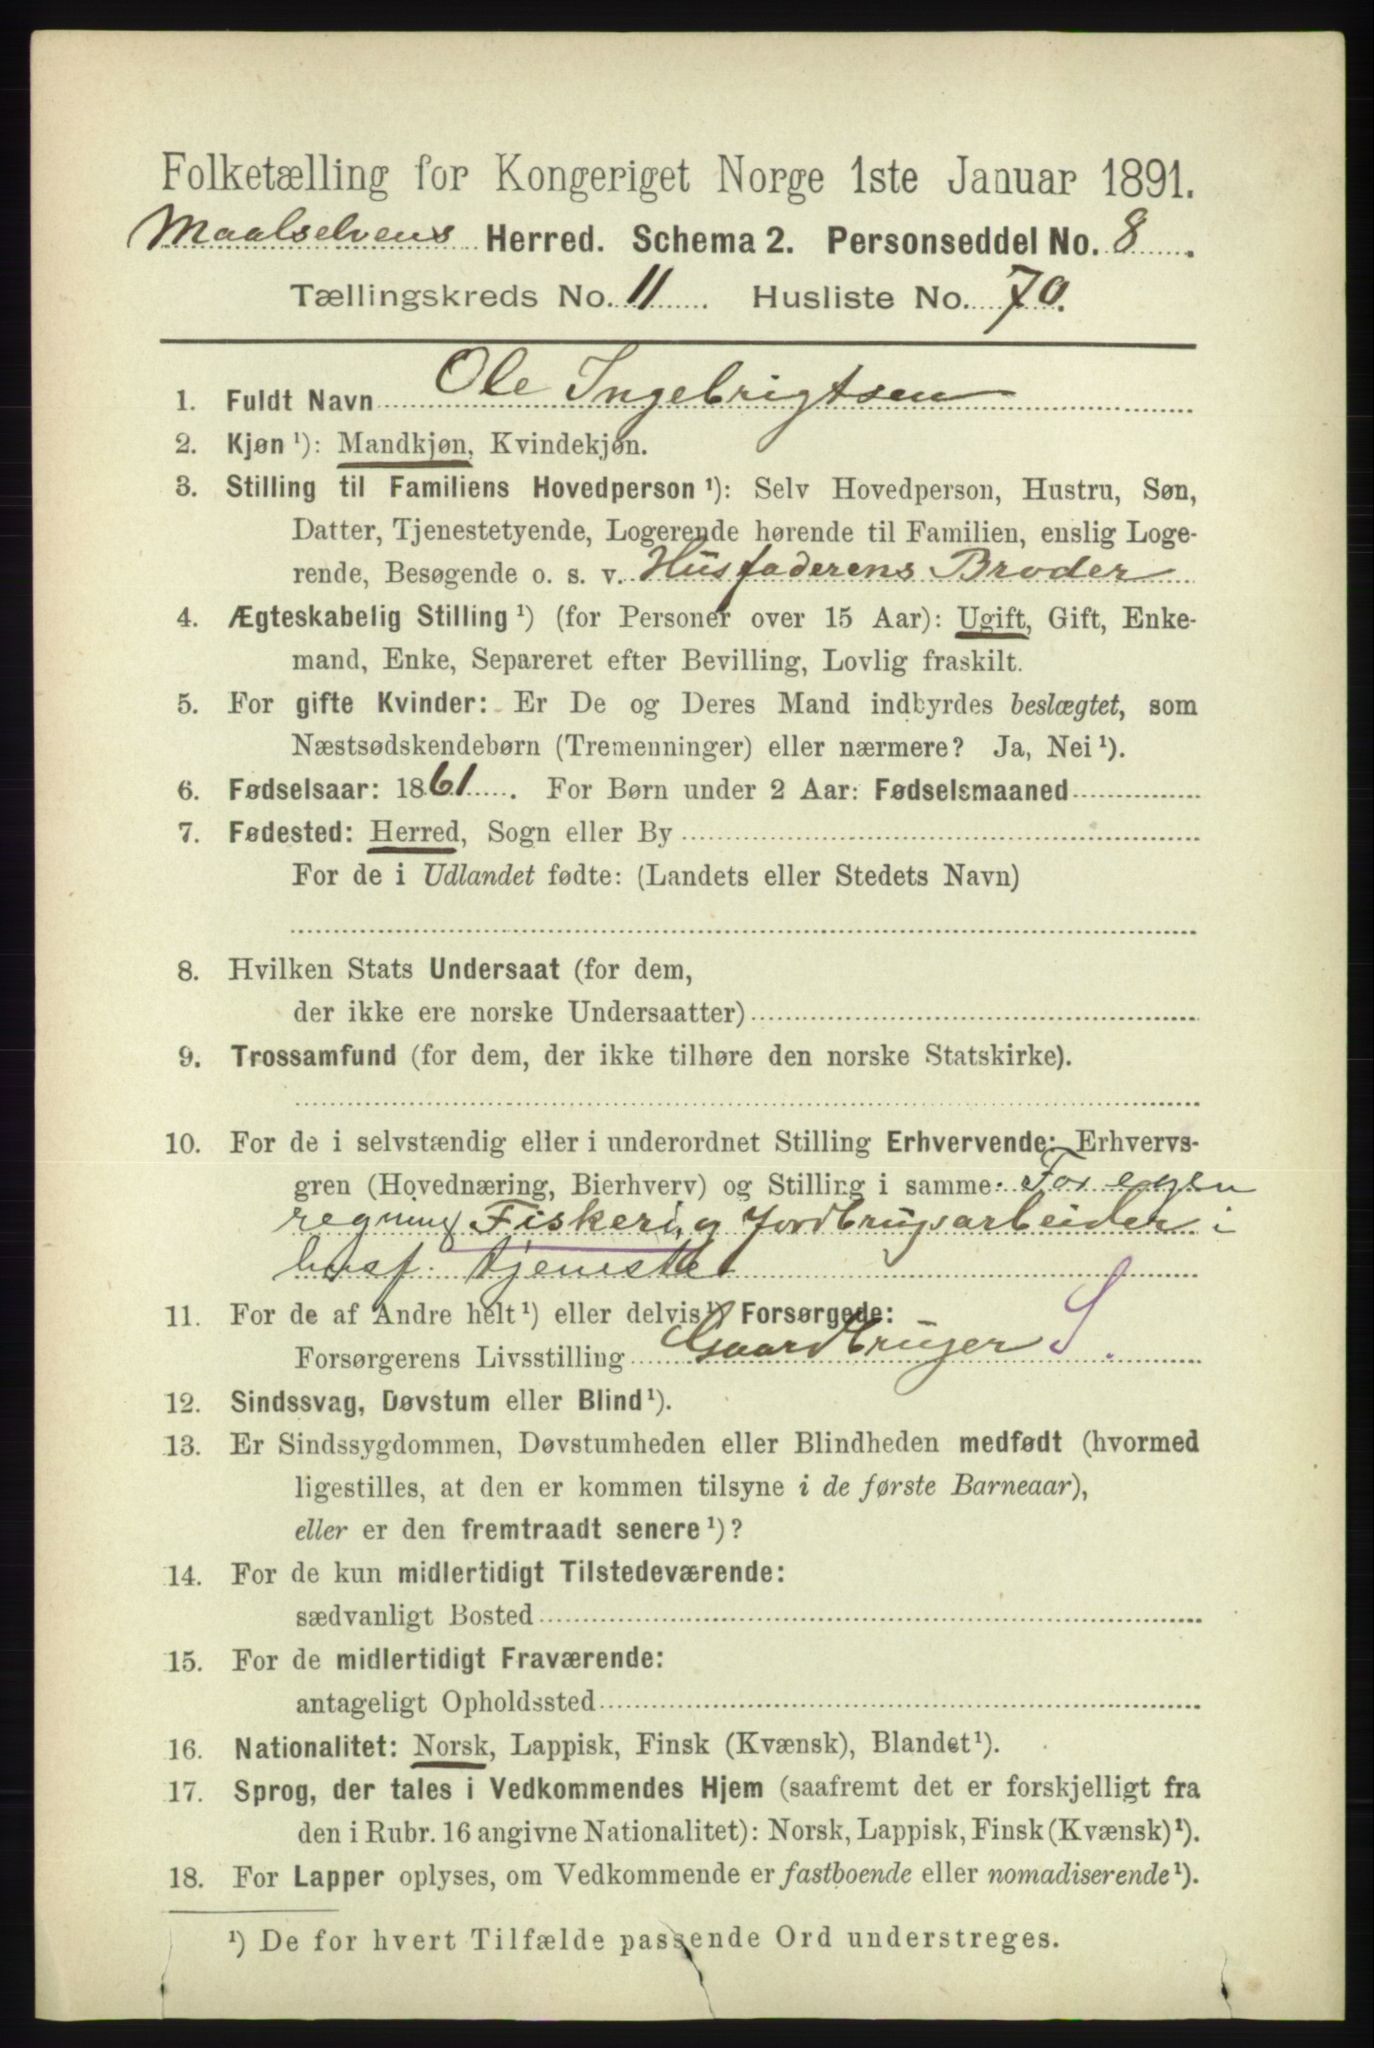 Folketælling for Kongeriget Norge 1ste Januar 1891.
Maalselvens Herred. Schema 2. Personseddel No. 8.
Tællingskreds No. 11. Husliste No. 70.
1. Fuldt Navn Ole Ingebrigtsen
2. Kjøn ¹): Mandkjøn, Kvindekjøn.
3. Stilling til Familiens Hovedperson ¹): Selv Hovedperson, Hustru, Søn,
Datter, Tjenestetyende, Logerende hørende til Familien, enslig Loge-
rende, Besøgende o. s. v. Husfaderens Broder
4. Ægteskabelig Stilling ¹) (for Personer over 15 Aar): Ugift, Gift, Enke-
mand, Enke, Separeret efter Bevilling, Lovlig fraskilt.
5. For gifte Kvinder: Er De og Deres Mand indbyrdes beslægtet, som
Næstsødskendebørn (Tremenninger) eller nærmere? Ja, Nei ¹).
6. Fødselsaar: 1861. For Børn under 2 Aar: Fødselsmaaned
7. Fødested: Herred, Sogn eller By
For de i Udlandet fødte: (Landets eller Stedets Navn)
8. Hvilken Stats Undersaat (for dem,
der ikke ere norske Undersaatter)
9. Trossamfund (for dem, der ikke tilhøre den norske Statskirke).
10. For de i selvstændig eller i underordnet Stilling Erhvervende: Erhvervs-
gren (Hovednæring, Bierhverv) og Stilling i samme. For egen
regning Fiskeri, og Jordbrugsarbeider i
husf. tjeneste
11. For de af Andre helt ¹) eller delvis ¹) Forsørgede:
Forsørgerens Livsstilling Gaardbruger S.
12. Sindssvag, Døvstum eller Blind ¹).
13. Er Sindssygdommen, Døvstumheden eller Blindheden medfødt (hvormed
ligestilles, at den er kommen tilsyne i de første Barneaar),
eller er den fremtraadt senere ¹)?
14. For de kun midlertidigt Tilstedeværende:
sædvanligt Bosted
15. For de midlertidigt Fraværende:
antageligt Opholdssted
16. Nationalitet: Norsk, Lappisk, Finsk (Kvænsk), Blandet ¹).
17. Sprog, der tales i Vedkommendes Hjem (saafremt det er forskjelligt fra
den i Rubr. 16 angivne Nationalitet): Norsk, Lappisk, Finsk (Kvænsk) ¹).
18. For Lapper oplyses, om Vedkommende er fastboende eller nomadiserende ¹).
¹) De for hvert Tilfælde passende Ord understreges.